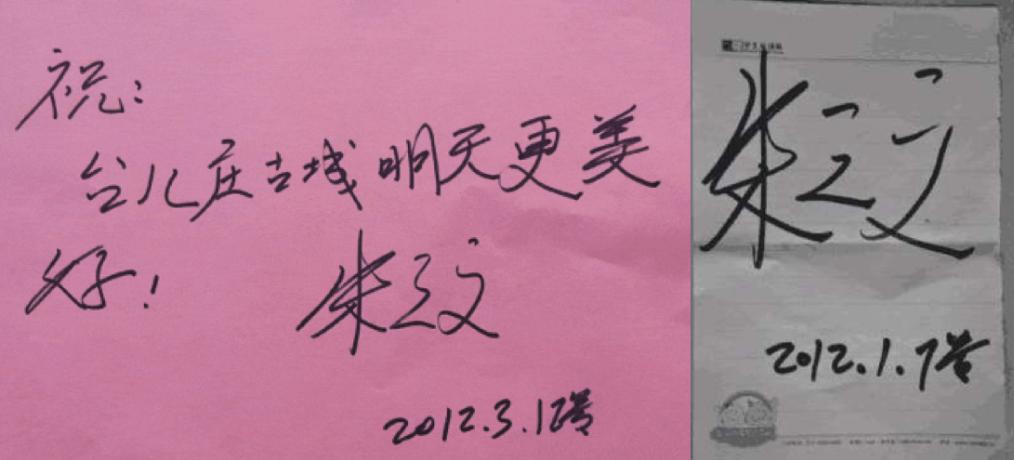 祝:
台儿庄古城明天更美
好!
朱之文
2012.3.12号
朱之文
2012.1.7号